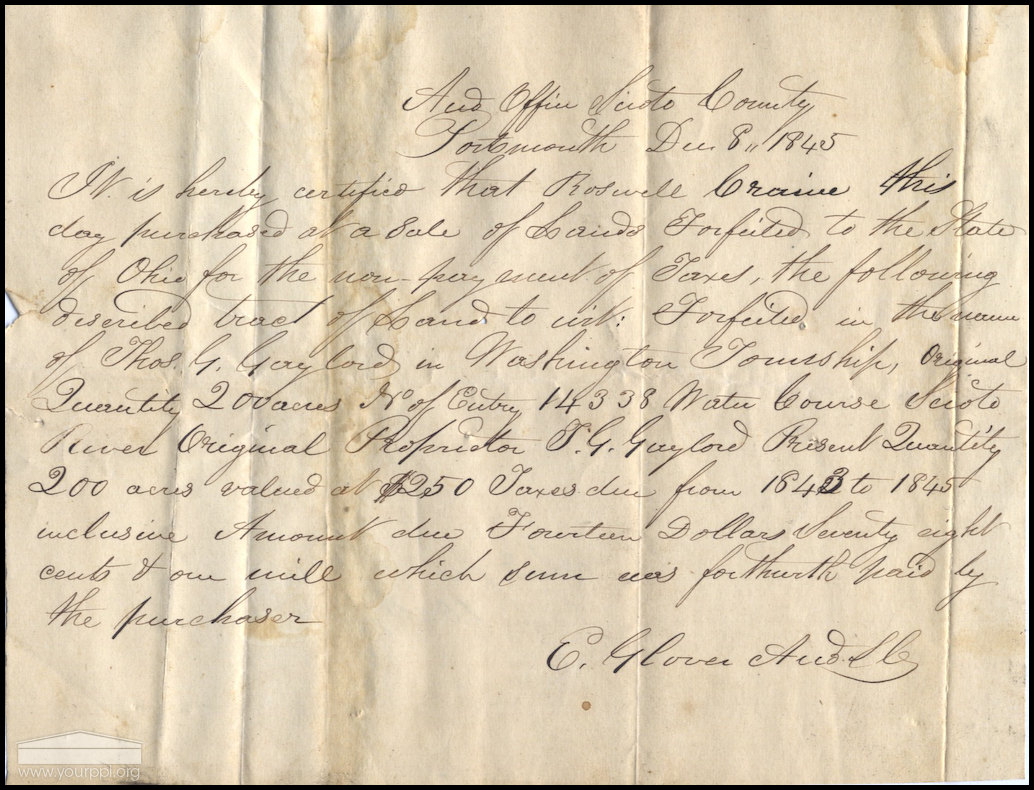 Aud Office Scioto County
Portsmouth Dec 8,, 1845
It is hereby certified that Roswell Craine this
day purchased at a Sale of Lands Forfeited to the State
of Ohio for the non-payment of Taxes, the following
described tract of Land to wit: Forfeited in the name
of Thos. G. Gaylord in Washington Township, Original
Quantity 200 acres No of Entry 14338 Water Course Scioto
River Original Proprietor T. G. Gaylord Present Quantity
200 acres valued at $250 Taxes due from 1843 to 1845
inclusive Amount due Fourteen Dollars Seventy eight
cents & one mill which sum was forthwith paid by
the purchaser
E. Glover Aud S C
www.yourppl.org